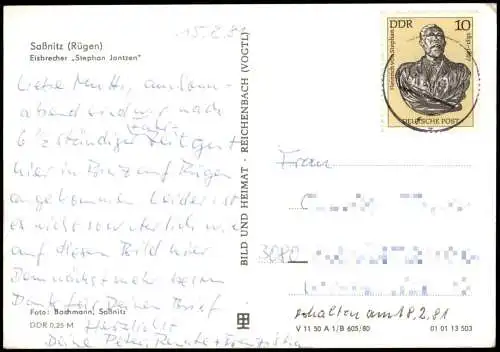 15.2.81
Saßnitz (Rügen)
Eisbrecher „Stephan Jantzen"
Liebe Mutti, am Sonn-
abend sind wir nach
6 ½ stündiger Fahrt
hier in Binz auf Rügen
angekommen. Leider ist
es nicht so winterlich wie
auf diesem Bild hier
Demnächst mehr
Dank für Deinen Brief
Foto: Bachmann, Saßnitz
DDR 0,25 M
Herzlichst
Deine Peter, Renate + Franziska
BILD UND HEIMAT · REICHENBACH (VOGTL)
DDR 10
Heinrich von Stephan 1831-1897
DEUTSCHE POST
Frau
3080
erhalten am 18.2.81
V 11 50 A 1/B 605/80 01 01 13 503